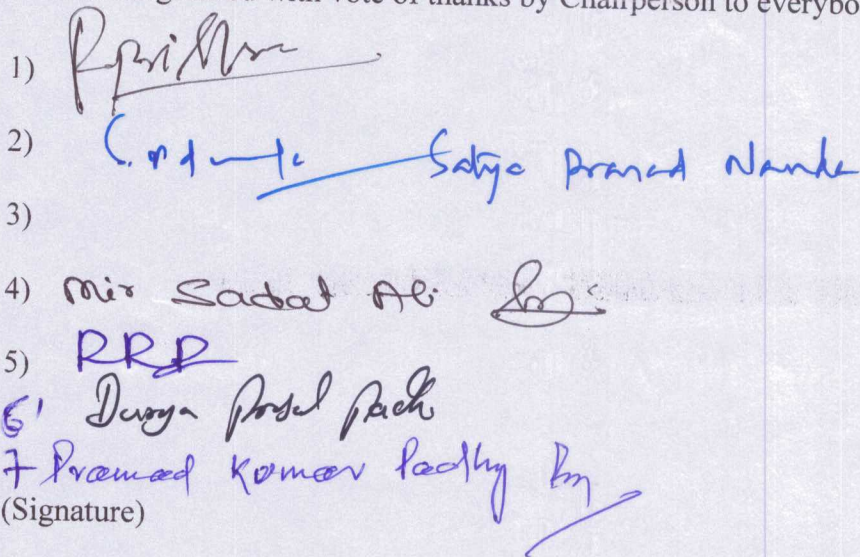 with vote of thanks by Chairperson to everybo
1)
2) Satya Prasad Nanda
3)
4) Mir Sadat Ali
5) RRP
6' Durga Prasad Padhi
7 Pramad Kumar Padhy
(Signature)